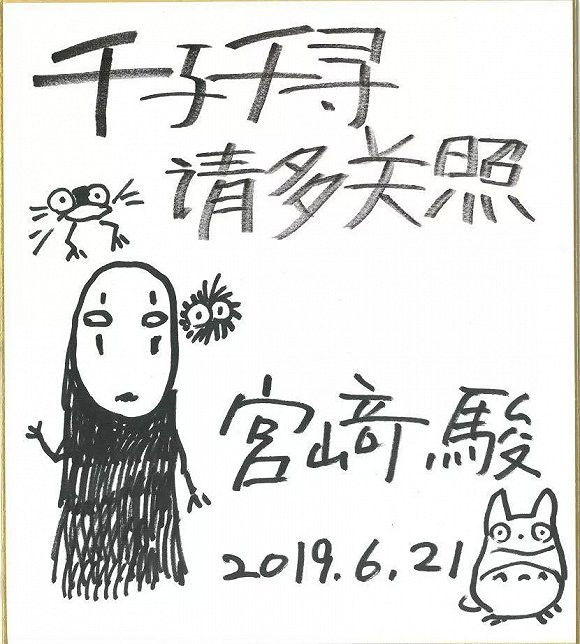 千与千寻
请多关照
宮﨑駿
2019.6.21